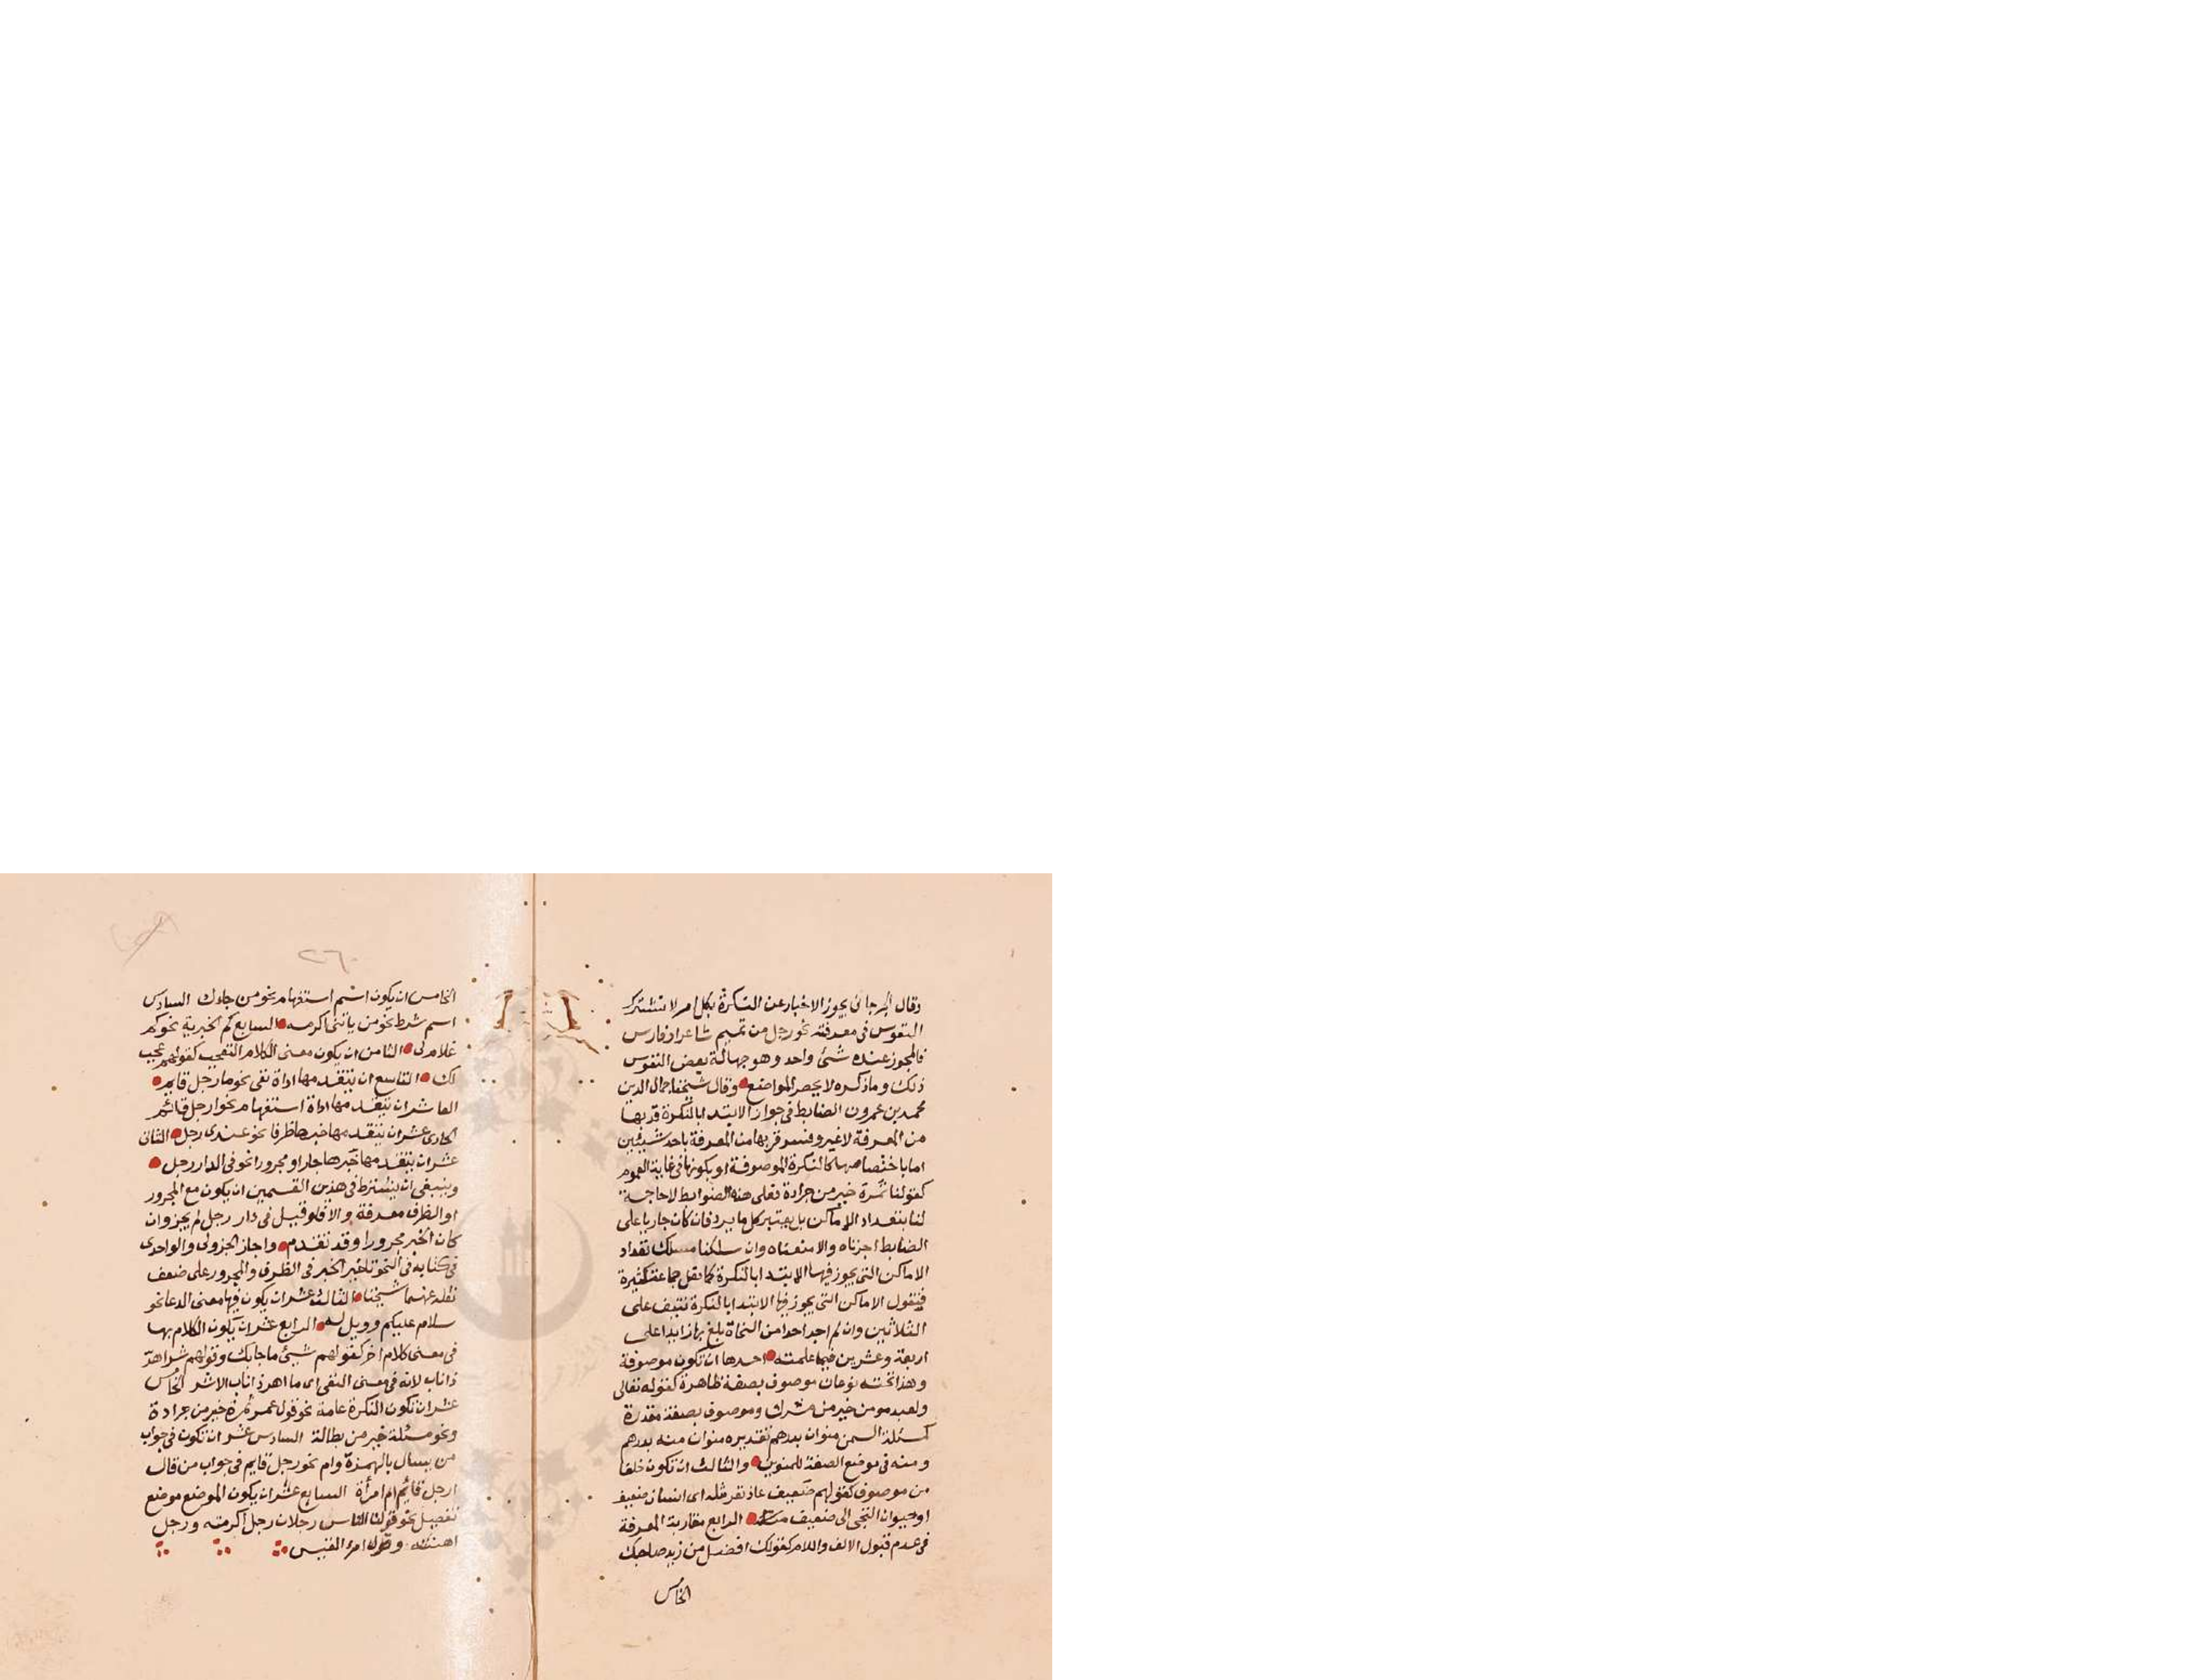 وقال الجرجانى يجوز الاخبار عن النكرة بكل امر لا تشترك
النفوس فى معرفته نحو رجل من تميم شاعر او فارس
فالمجوز عنده شئ واحد وهو جهالة بعض النفوس
ذلك وما ذكره لا يحصر المواضع وقال شيخنا جمال الدين
محمد بن عمرون الضابط فى جواز الابتدا بالنكرة قربها
من المعرفة لا غير وفسر قربها من المعرفة باحد شيئين
اما باختصاصها كالنكرة الموصوفة او بكونها فى غاية العموم
كقولنا تمرة خير من جرادة فعلى هذه الضوابط لا حاجة
لنا بتعداد الاماكن بل يعتبر كل ما يرد فان كان جاريا على
الضابط اجزناه والا منعناه وان سلكنا مسلك تعداد
الاماكن التى يجوز فيها الابتدا بالنكرة كما نقل جماعة كثيرة
فنقول الاماكن التى يجوز فيها الابتدا بالنكرة تنيف على
الثلاثين وان لم اجد احدا من النحاة بلغ بها زايدا على
اربعة وعشرين فيما علمته احدها ان تكون موصوفة
وهذا تحته نوعان موصوف بصفة ظاهرة كقوله تعالى
ولعبد مومن خير من مشرك وموصوف بصفة مقدرة
كمسئلة السمن منوان بدرهم تقديره منوان منه بدرهم
ومنه فى موضع الصفة للمنوين والثالث ان تكون خلفا
من موصوف كقولهم ضعيف عاذ بقرملة اى انسان ضعيف
او حيوان التجى الى ضعيف الرابع مقاربة المعرفة
فى عدم قبول الالف واللام كقولك افضل من زيد صاحبك
الخامس
٢٦
الخامس ان يكون اسم استفهام نحو من جاءك السادس
اسم شرط نحو من ياتنى اكرمه السابع كم الخبرية نحو كم
غلام لى الثامن ان يكون معنى الكلام التعجب كقولهم عجب
لك التاسع ان يتقدمها اداة نفى نحو ما رجل قايم
العاشر ان يتقدمها اداة استفهام نحو ا رجل قائم
الحادى عشر ان يتقدمها خبرها ظرفا نحو عندى رجل الثانى
عشر ان يتقدمها خبرها جارا ومجرورا نحو فى الدار رجل
وينبغى ان يشترط فى هذين القسمين ان يكون مع المجرور
او الظرف معرفة والا فلو قيل فى دار رجل لم يجز وان
كان الخبر مجرورا وقد تقدم واجاز الجزولى والواحدى
فى كتابه فى النحو تاخير الخبر فى الظرف والمجرور على ضعف
نقله عنهما شيخنا الثالث عشر ان يكون فيها معنى الدعا نحو
سلام عليكم وويل له الرابع عشر ان يكون الكلام بها
فى معنى كلام اخر كقولهم شيئ ما جا بك وقولهم شر اهر
ذا ناب لانه فى معنى النفى اى ما اهر ذا ناب الا شر الخامس
عشر ان تكون النكرة عامة نحو قول عمر تمرة خير من جرادة
ونحو مسئلة خير من بطالة السادس عشر ان تكون فى جواب
من يسال بالهمزة وام نحو رجل قايم فى جواب من قال
ارجل قائم ام امرأة السابع عشر ان يكون الموضع موضع
تفصيل نحو قولنا الناس رجلان رجل اكرمته ورجل
اهنته وقول امرؤ القيس